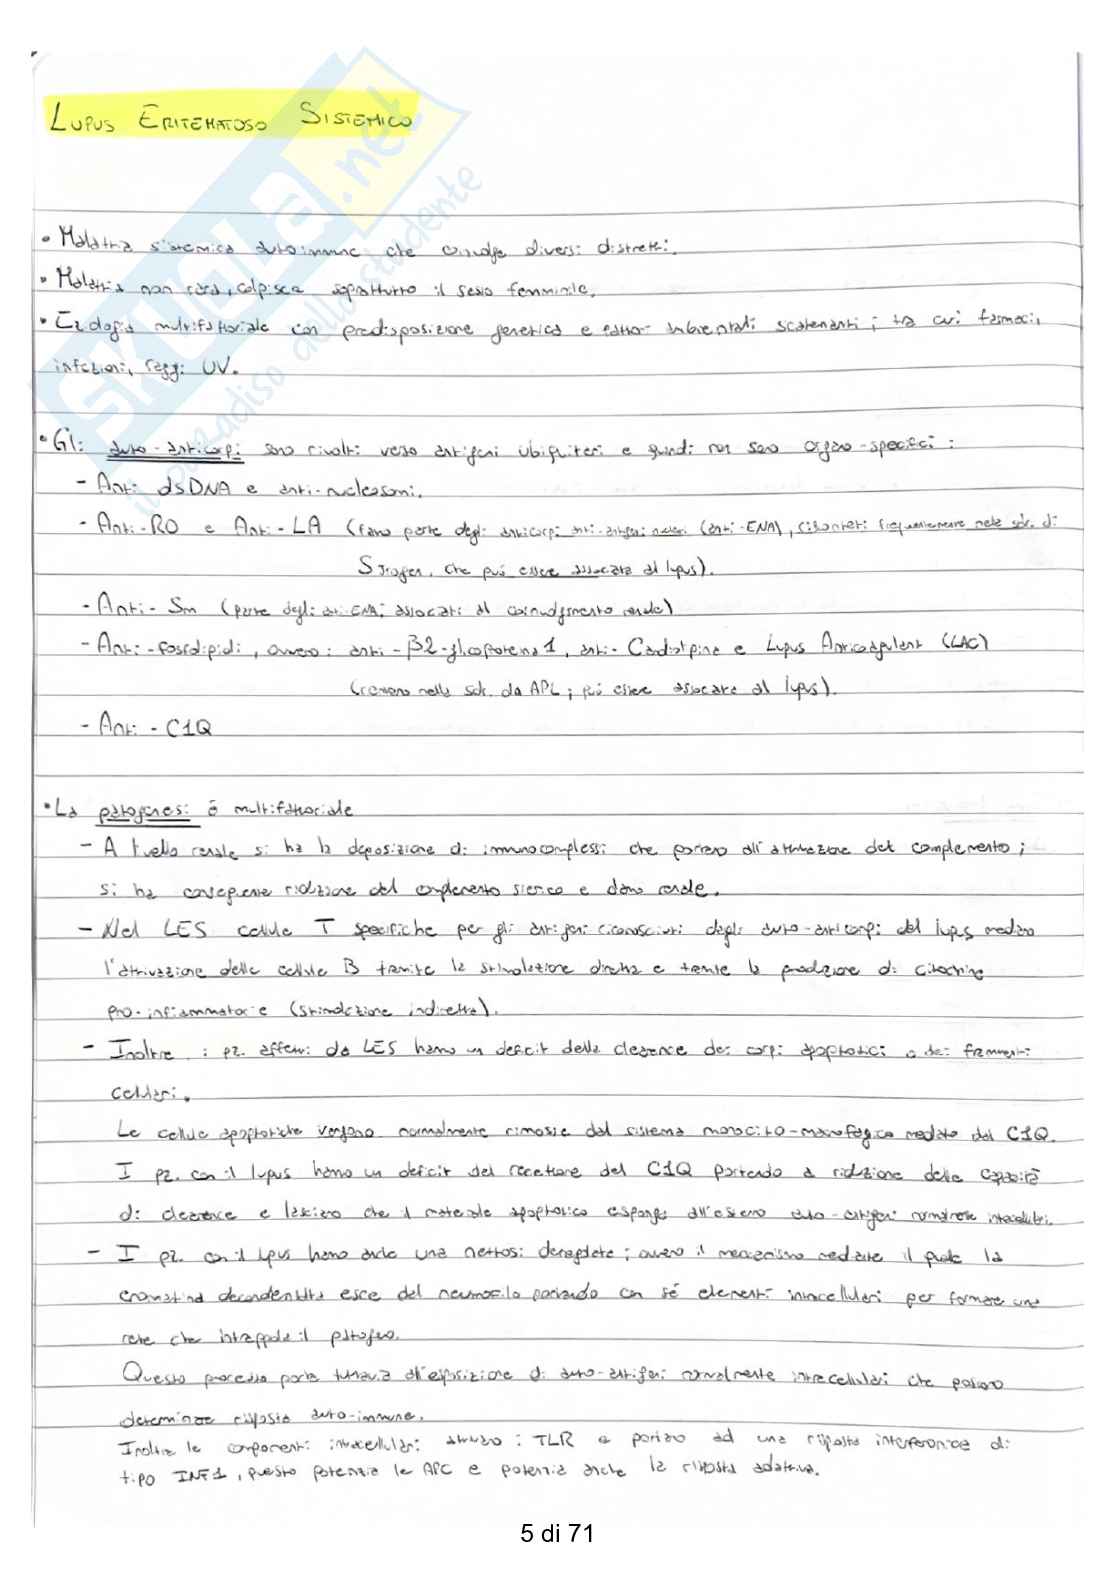 LUPUS ERITEMATOSO SISTEMICO
SKUOLA.net
il paradiso dello studente
• Malattia sistemica autoimmune che coinvolge diversi distretti.
• Malattia non rara, colpisce soprattutto il sesso femminile.
• Eziologia multifattoriale con predisposizione genetica e fattori ambientali scatenanti; tra cui farmaci,
infezioni, raggi UV.
• Gli auto-anticorpi sono rivolti verso antigeni ubiquiteri e quindi non sono organo-specifici:
- Anti dsDNA e anti-nucleosomi.
- Anti-RO e Anti-LA (fanno parte degli anticorpi anti-antigeni nucleari (anti-ENA), riscontrati frequentemente nella sdr. di
Sjrogen, che può essere associata al lupus).
- Anti-Sm (parte degli anti-ENA; associati al coinvolgimento renale)
- Anti-fosfolipidi, ovvero: anti-β2-glicoproteina1, anti-Cardiolipina e Lupus Anticoagulant (LAC)
(rientrano nella sdr. da APL; può essere associata al lupus).
- Anti-C1Q
• La patogenesi è multifattoriale
- A livello renale si ha la deposizione di immunocomplessi che portano all'attivazione del complemento;
si ha conseguente riduzione del complemento sierico e danno renale.
- Nel LES cellule T specifiche per gli antigeni riconosciuti dagli auto-anticorpi del lupus mediano
l'attivazione delle cellule B tramite la stimolazione diretta e tramite la produzione di citochine
pro-infiammatorie (stimolazione indiretta).
- Inoltre i pz. affetti da LES hanno un deficit della clearence dei corpi apoptotici o dei frammenti
cellulari.
Le cellule apoptotiche vengono normalmente rimosse dal sistema monocito-macrofagico mediato dal C1Q.
I pz. con il lupus hanno un deficit del recettore del C1Q portando a riduzione della capacità
di clearence e lasciano che il materiale apoptotico esponga all'esterno auto-antigeni normalmente intracellulari.
- I pz. con il lupus hanno anche una nettosi deregolata; ovvero il meccanismo mediante il quale la
cromatina decondensata esce dal neutrofilo portando con sé elementi intracellulari per formare una
rete che intrappola il patogeno.
Questo processo porta tuttavia all'esposizione di auto-antigeni normalmente intracellulari che possono
determinare risposta auto-immune.
Inoltre le componenti intracellulari attivano i TLR e portano ad una risposta interferonica di
tipo INF1, questo potenzia le APC e potenzia anche la risposta adattiva.
5 di 71